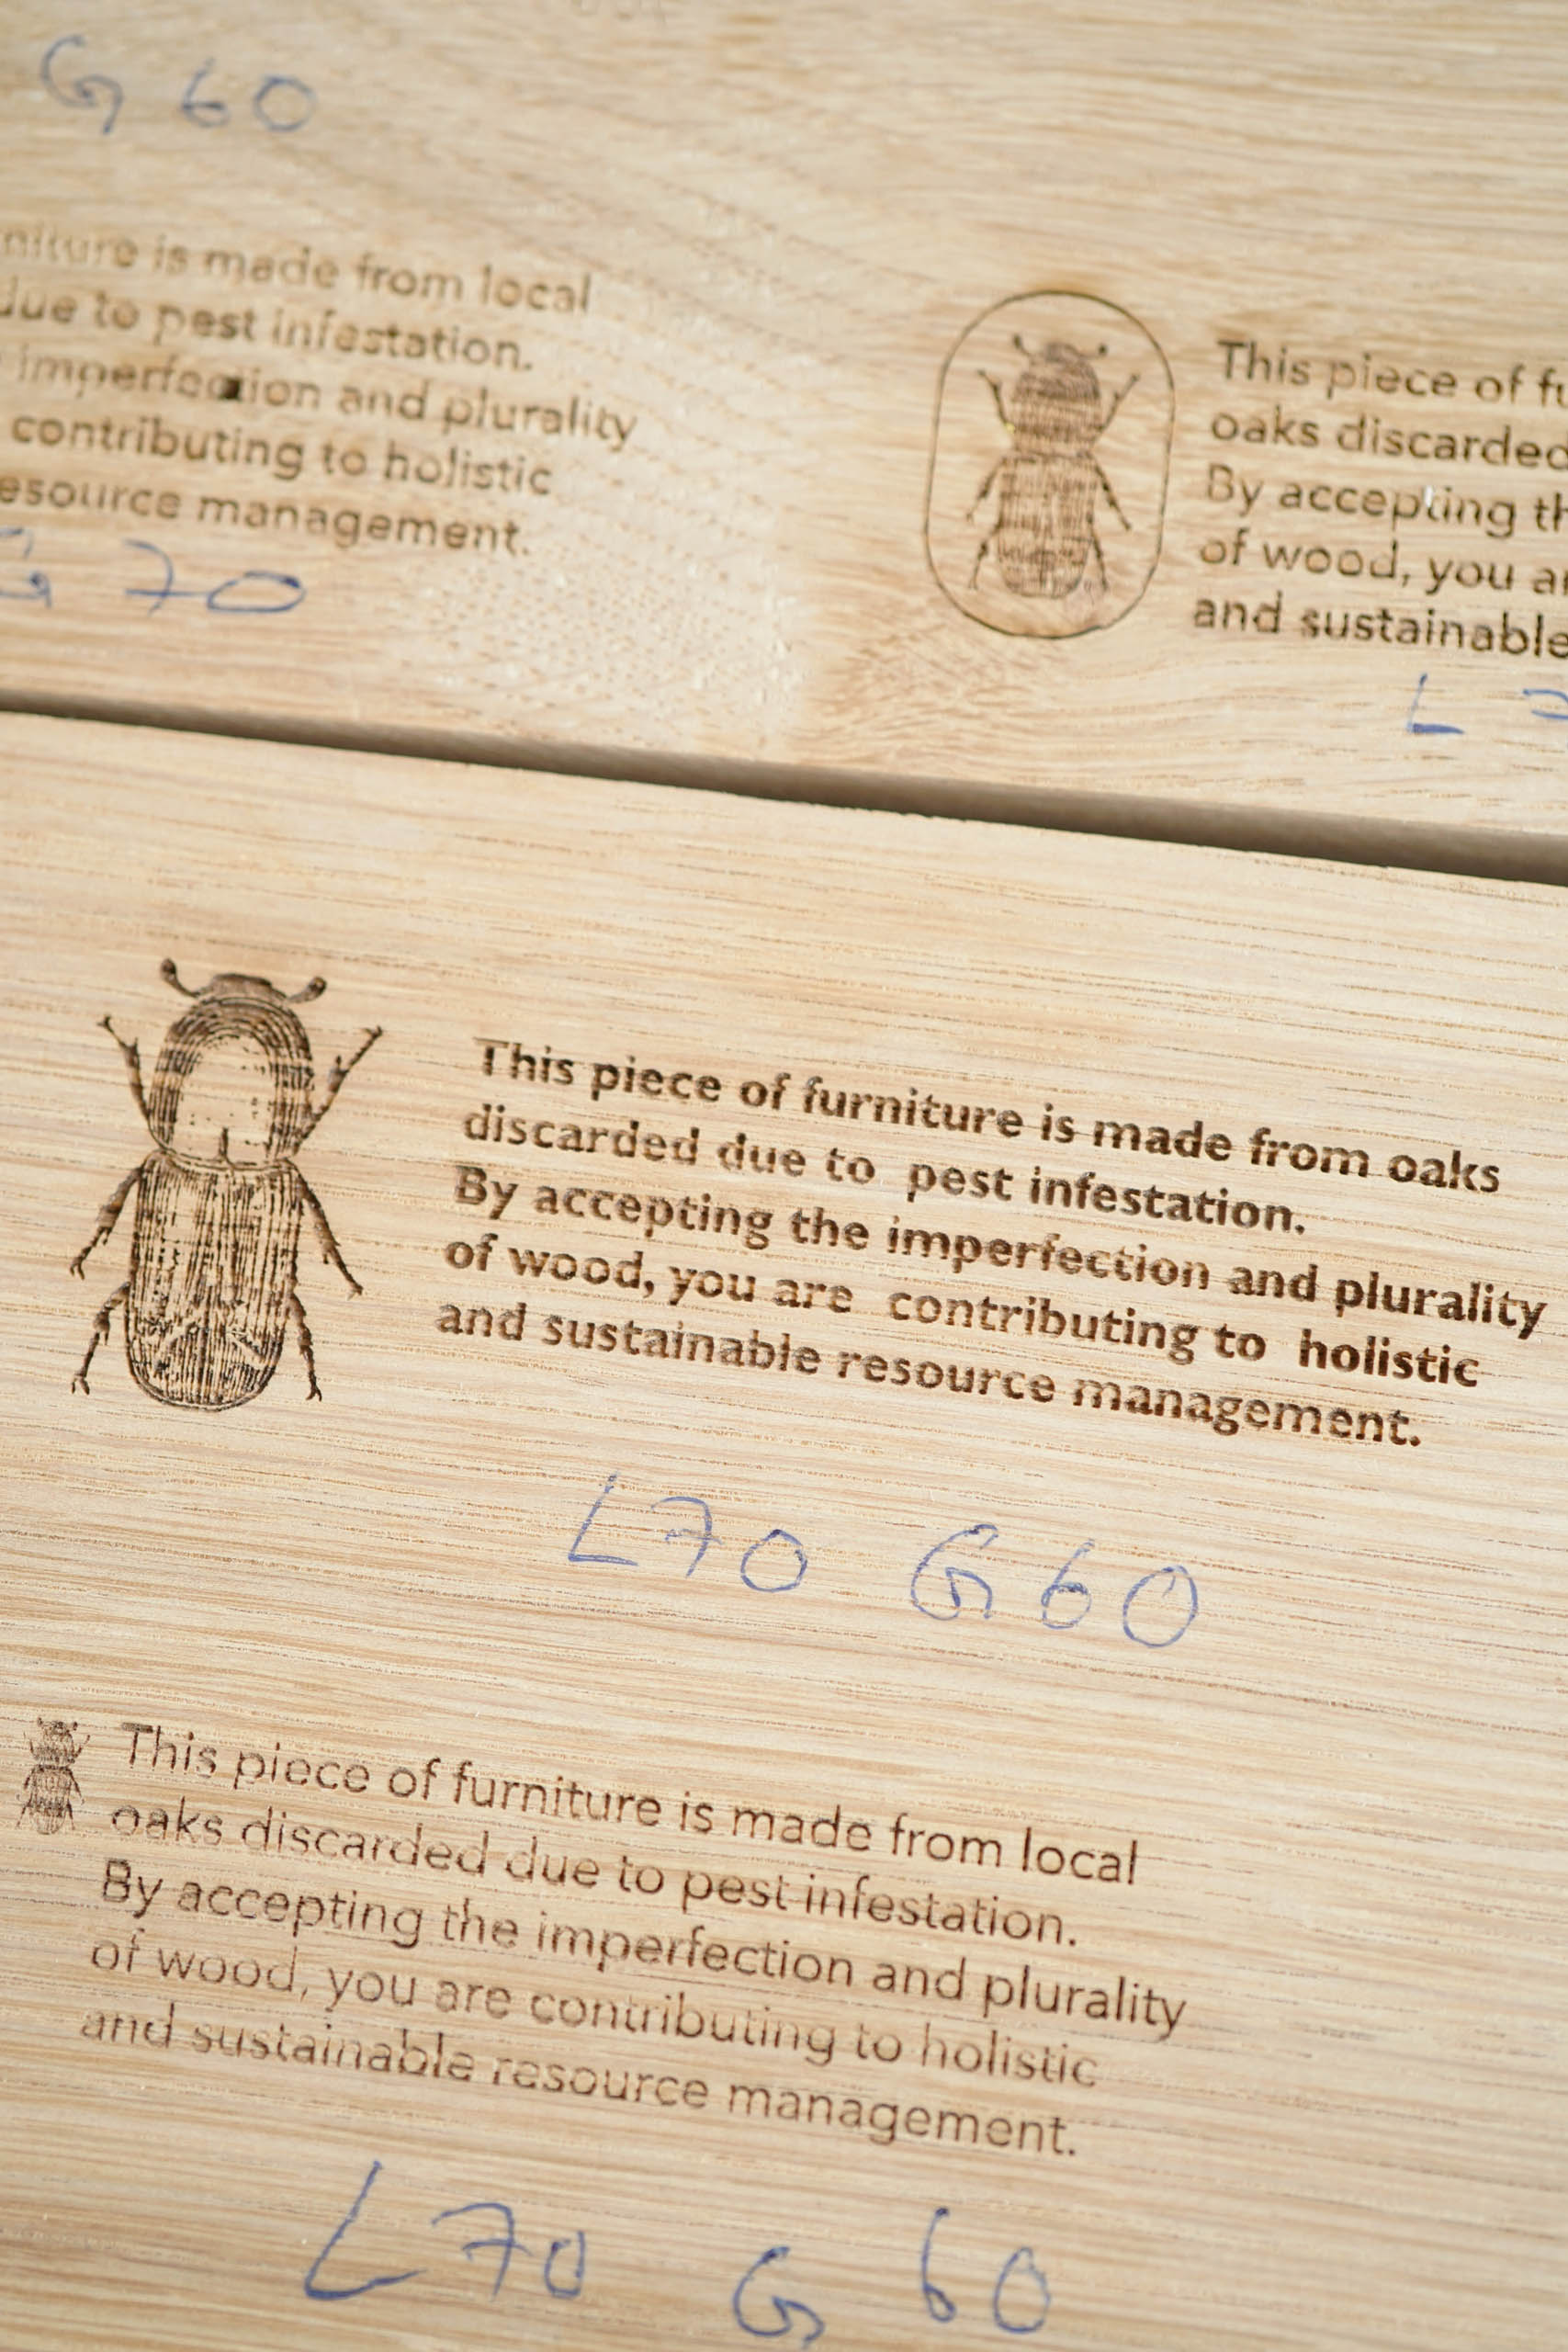 G 60
is made from local
due to pest infestation.
imperfection and plurality
contributing to holistic
management.
G 70
This piece of
oaks discarded
By accepting
of wood, you
and sustainable
L
This piece of furniture is made from oaks
discarded due to pest infestation.
By accepting the imperfection and plurality
of wood, you are contributing to holistic
and sustainable resource management.
L70 G60
This piece of furniture is made from local
oaks discarded due to pest infestation.
By accepting the imperfection and plurality
of wood, you are contributing to holistic
and sustainable resource management.
L70 G 60